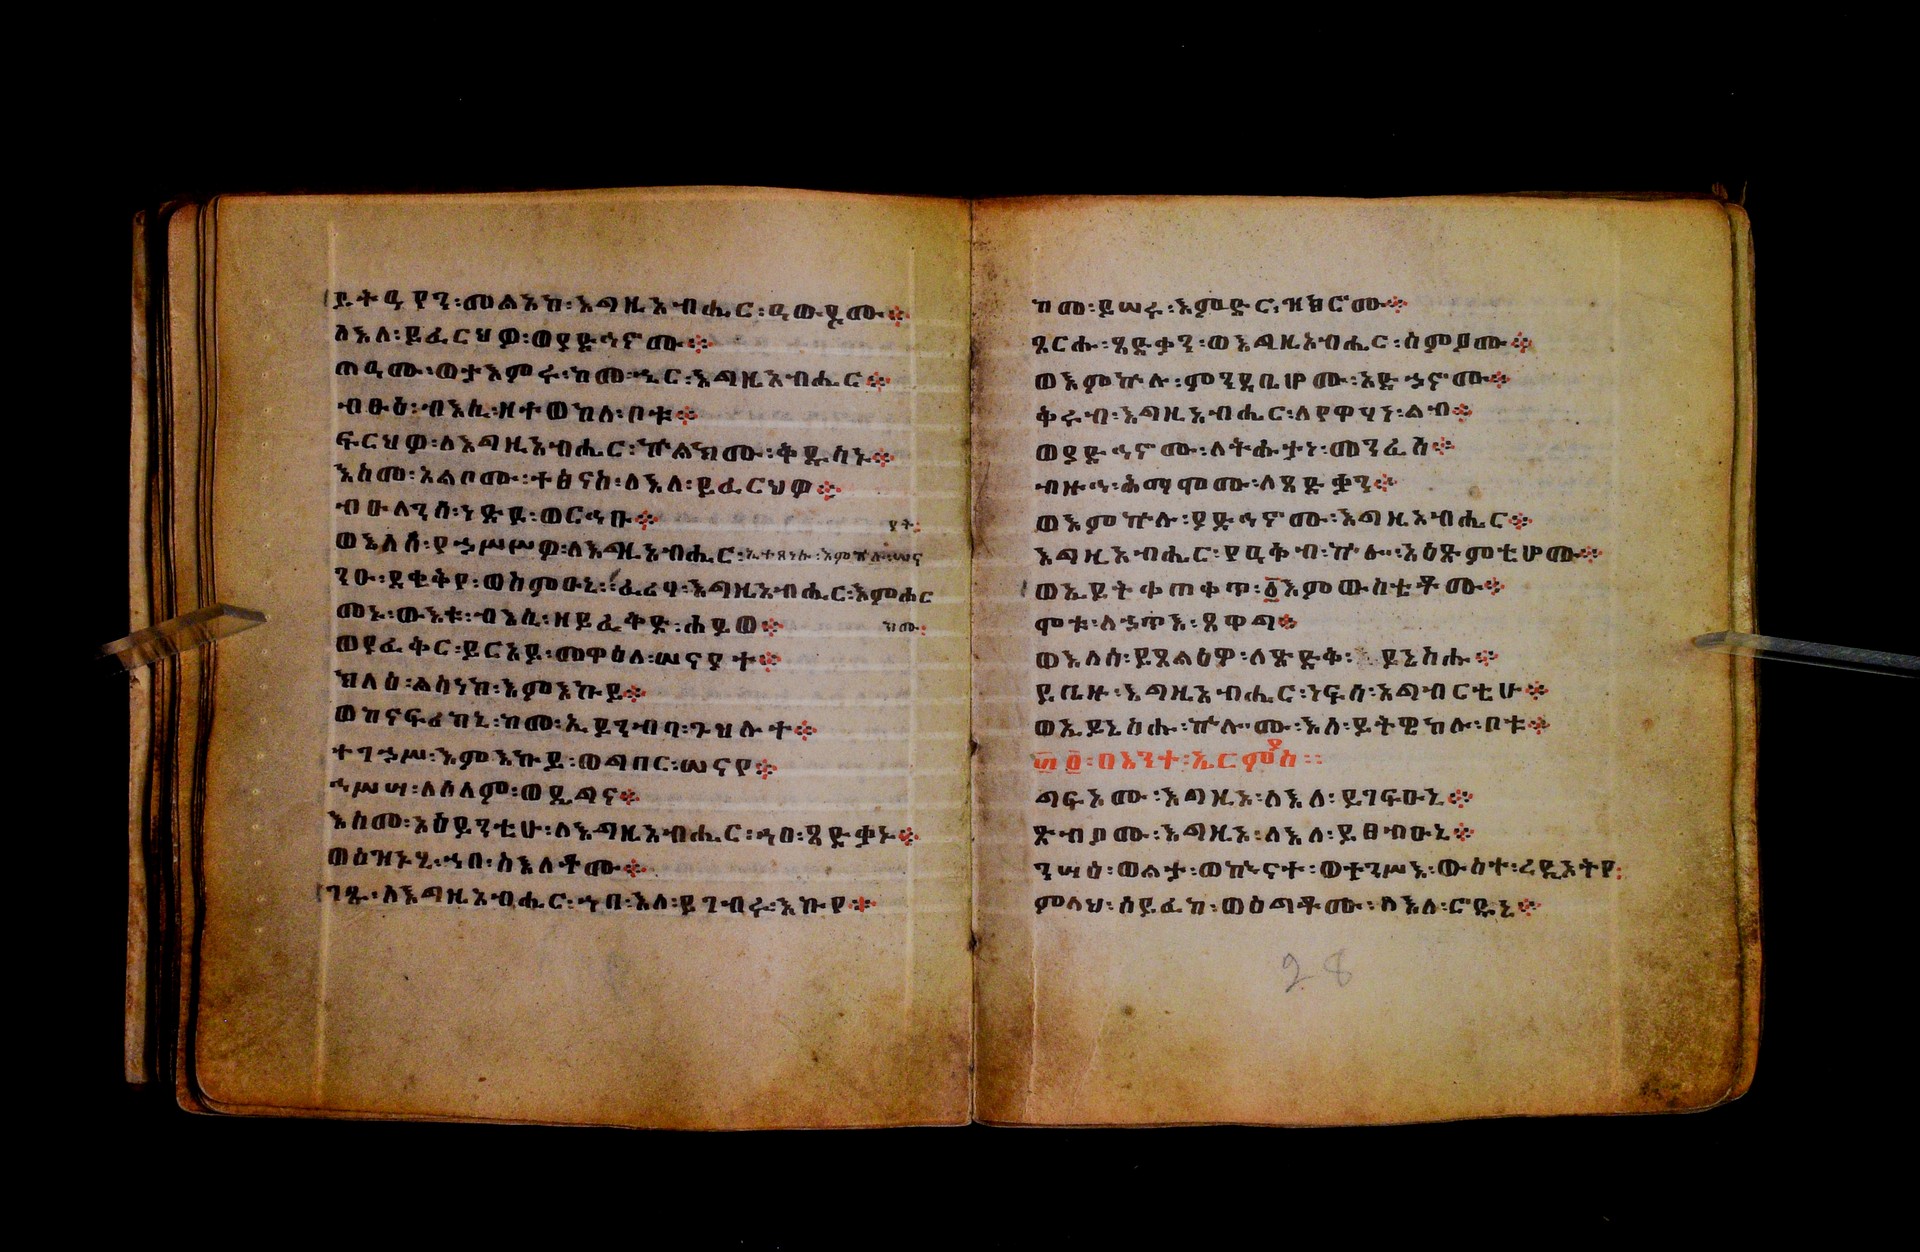 ይትዓየን፡መልአከ፡እግዚአብሔር፡ዓውዶሙ፨
ለእለ፡ይፈርህዎ፡ወያድኅኖሙ፨
ጠዓሙ፡ወታአምሩ፡ከመ፡ኄር፡እግዚአብሔር፨
ብፁዕ፡ብእሲ፡ዘተወከለ፡ቦቱ፨
ፍርህዎ፡ለእግዚአብሔር፡ኵልክሙ፡ቅዱሳኑ፨
እስመ፡አልቦሙ፡ተፅናስ፡ለእለ፡ይፈርህዎ፨
ብዑላንሰ፡ነድዩ፡ወርኅቡ፨
ወእለሰ፡የኃሥሥዎ፡ለእግዚአብሔር፡ኢተጸነሱ፡እምኵሉ፡ሠና
ያት፡
ንዑ፡ደቂቅየ፡ወስምዑኒ፡ፈሪሃ፡እግዚአብሔር፡እምሐር
ክሙ፡
መኑ፡ውእቱ፡ብእሲ፡ዘይፈቅድ፡ሐይወ፨
ወያፈቅር፡ይርአይ፡መዋዕለ፡ሠናያተ፨
ክላዕ፡ልሳነከ፡እምእኩይ፨
ወከናፍሪከኒ፡ከመ፡ኢይንብባ፡ጕሕሉተ፨
ተገኃሥ፡እምእኩይ፡ወግበር፡ሠናየ፨
ኅሥሣ፡ለሰላም፡ወዴግና፨
እስመ፡አዕይንቲሁ፡ለእግዚአብሔር፡ኀበ፡ጻድቃኑ፨
ወዕዝኑሂ፡ኀበ፡ስእለቶሙ፨
ገጹ፡ለእግዚአብሔር፡ኀበ፡እለ፡ይገብሩ፡እኩየ፨
ከመ፡ይሠሩ፡እምድር፡ዝክሮሙ፨
ጸርሑ፡ጻድቃን፡ወእግዚአብሔር፡ሰምዖሙ፨
ወእምኵሉ፡ምንዳቤሆሙ፡አድኃኖሙ፨
ቅሩብ፡እግዚአብሔር፡ለየዋሃነ፡ልብ፨
ወያድኅኖሙ፡ለትሑታነ፡መንፈስ፨
ብዙኅ፡ሕማሞሙ፡ለጻድቃን፨
ወእምኵሉ፡ያድኅኖሙ፡እግዚአብሔር፨
እግዚአብሔር፡የዓቅብ፡ኵሎ፡አዕጽምቲሆሙ፨
ወኢይትቀጠቀጥ፡፩እምውስቴቶሙ፨
ሞቱ፡ለኃጥእ፡ጸዋግ፨
ወእለሰ፡ይጸልዕዎ፡ለጽድቅ፡ይኔስሑ፨
ይቤዙ፡እግዚአብሔር፡ነፍሰ፡አግብርቲሁ፨
ወኢይኔስሑ፡ኵሎሙ፡እለ፡ይትዌከሉ፡ቦቱ፨
፴፬፡በእንተ፡ኤርምያስ፡፡
ግፍእሙ፡እግዚኦ፡ለእለ፡ይገፍዑኒ፨
ጽብዖሙ፡እግዚኦ፡ለእለ፡ይፀብዑኒ፨
ንሣዕ፡ወልታ፡ወኵናተ፡ወተንሥእ፡ውስተ፡ረዲኦትየ፡
ምላህ፡ሰይፈከ፡ወዕግቶሙ፡ለእለ፡ሮዱኒ፨
28